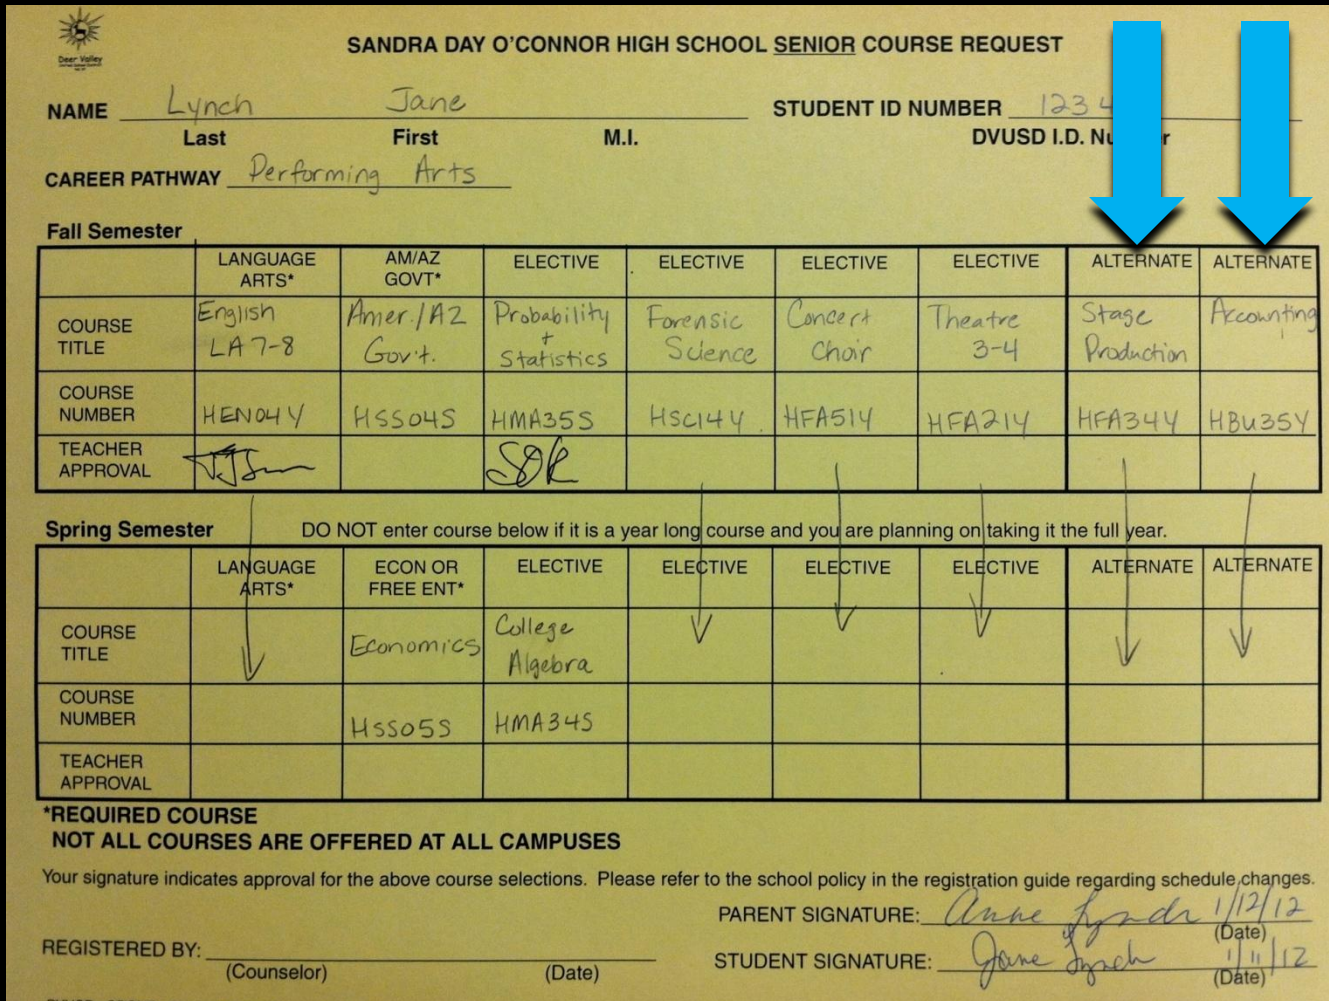 Deer Valley
SANDRA DAY O'CONNOR HIGH SCHOOL SENIOR COURSE REQUEST
NAME Lynch Jane STUDENT ID NUMBER 123 4
Last First M.I. DVUSD I.D. Nu r
CAREER PATHWAY Performing Arts
Fall Semester
LANGUAGE ARTS* AM/AZ GOVT* ELECTIVE ELECTIVE ELECTIVE ELECTIVE ALTERNATE ALTERNATE
COURSE TITLE English LA 7-8 Amer./AZ Gov't. Probability + Statistics Forensic Science Concert Choir Theatre 3-4 Stage Production Accounting
COURSE NUMBER HEN04Y HSS04S HMA35S HSC14Y HFA51Y HFA21Y HFA34Y HBU35Y
TEACHER APPROVAL
Spring Semester DO NOT enter course below if it is a year long course and you are planning on taking it the full year.
LANGUAGE ARTS* ECON OR FREE ENT* ELECTIVE ELECTIVE ELECTIVE ELECTIVE ALTERNATE ALTERNATE
COURSE TITLE Economics College Algebra
COURSE NUMBER HSS05S HMA34S
TEACHER APPROVAL
*REQUIRED COURSE
NOT ALL COURSES ARE OFFERED AT ALL CAMPUSES
Your signature indicates approval for the above course selections. Please refer to the school policy in the registration guide regarding schedule changes.
PARENT SIGNATURE: Anne Lynch 1/12/12
(Date)
REGISTERED BY: STUDENT SIGNATURE: Jane Lynch 1/11/12
(Counselor) (Date) (Date)